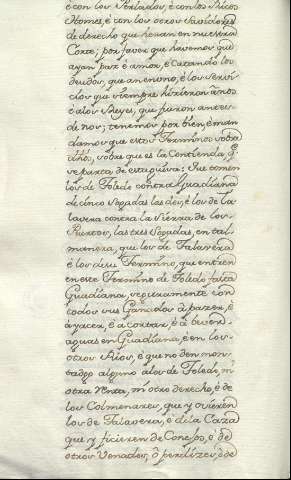 é con los Prelados, é con los Ricos
Homes, é con los otros Savidores
de derecho que heran en nuestra
Corte; por favor que havemos que
ayan paz é amor, é catando los
deudos, que an en uno, é los servi-
cios que siempre hicieron á nos
é á los Reyes, que fueron antes
de nos; tenemos por bien, é man
damos que estos Terminos sobre
dichos, sobre que es la Contienda, q.e
se parta de esta guisa: Que comen
los de Toledo contra Guadiana
de cinco Sogadas las dos, é los de Ta-
lavera contra la Sierra de los
Puertos, las tres Sogadas, en tal
manera, que los de Talavera
é los de su Termino, que entren
en este Termino de Toledo fasta
Guadiana, seguramente con
todos sus Ganados á pazer, é
á yacer, é á cortar, é á bever
aguas en Guadiana, é en los
otros Rios, é que no den mon-
tadgo alguno á los de Toledo, ni
otra Renta, ni otro derecho, é de
los Colmenares, que y ovieren
los de Talavera, é de la Caza
que y ficieren de Conejos, é de
otros Venados, ó perdizes, ó de